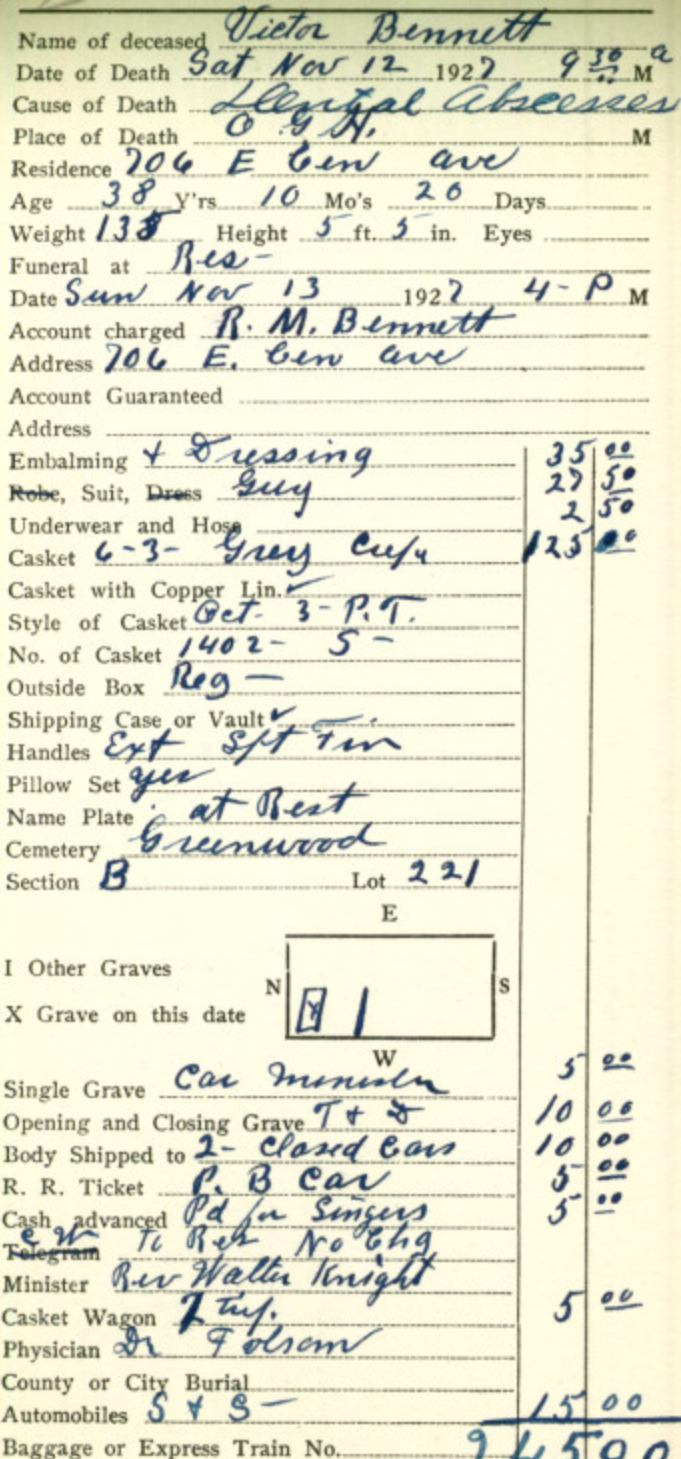 Name of deceased Victor Bennett
Date of Death Sat Nov 12 1927 9 30 a M
Cause of Death Dental Abscesses
Place of Death O G H. M
Residence 706 E Cen ave
Age 38 Y'rs 10 Mo's 20 Days
Weight 135 Height 5 ft. 5 in. Eyes
Funeral at Res-
Date Sun Nov 13 1927 4- P M
Account charged R. M. Bennett
Address 706 E. Cen ave
Account Guaranteed
Address
Embalming + Dressing 35 00
Robe, Suit, Dress Grey 27 50
Underwear and Hose 2 50
Casket 6-3- Grey 125 00
Casket with Copper Lin. ✓
Style of Casket Oct- 3- P.T.
No. of Casket 1402- S-
Outside Box Reg-
Shipping Case or Vault ✓
Handles Ext
Pillow Set yes
Name Plate at Rest
Cemetery Greenwood
Section B Lot 221
E
I Other Graves
N S
X Grave on this date X I
W
Single Grave Car Minister 5 00
Opening and Closing Grave T & D 10 00
Body Shipped to 2- Closed Cars 10 00
R. R. Ticket P. B Car 5 00
Cash advanced Pd for Singers 5 00
Telegram C W To Res No Chg
Minister Rev Walter Knight
Casket Wagon 5 00
Physician Dr Folsom
County or City Burial
Automobiles S & S- 15 00
Baggage or Express Train No. 245 00